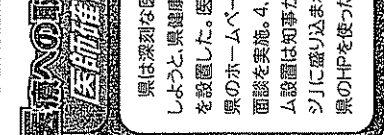 医師確
県は深刻な医
しようと、県健康
を設置した。医
県のホームペー
面談を実施。4、
ム設置は知事が
ジ」に盛り込ま
県のHPを使った